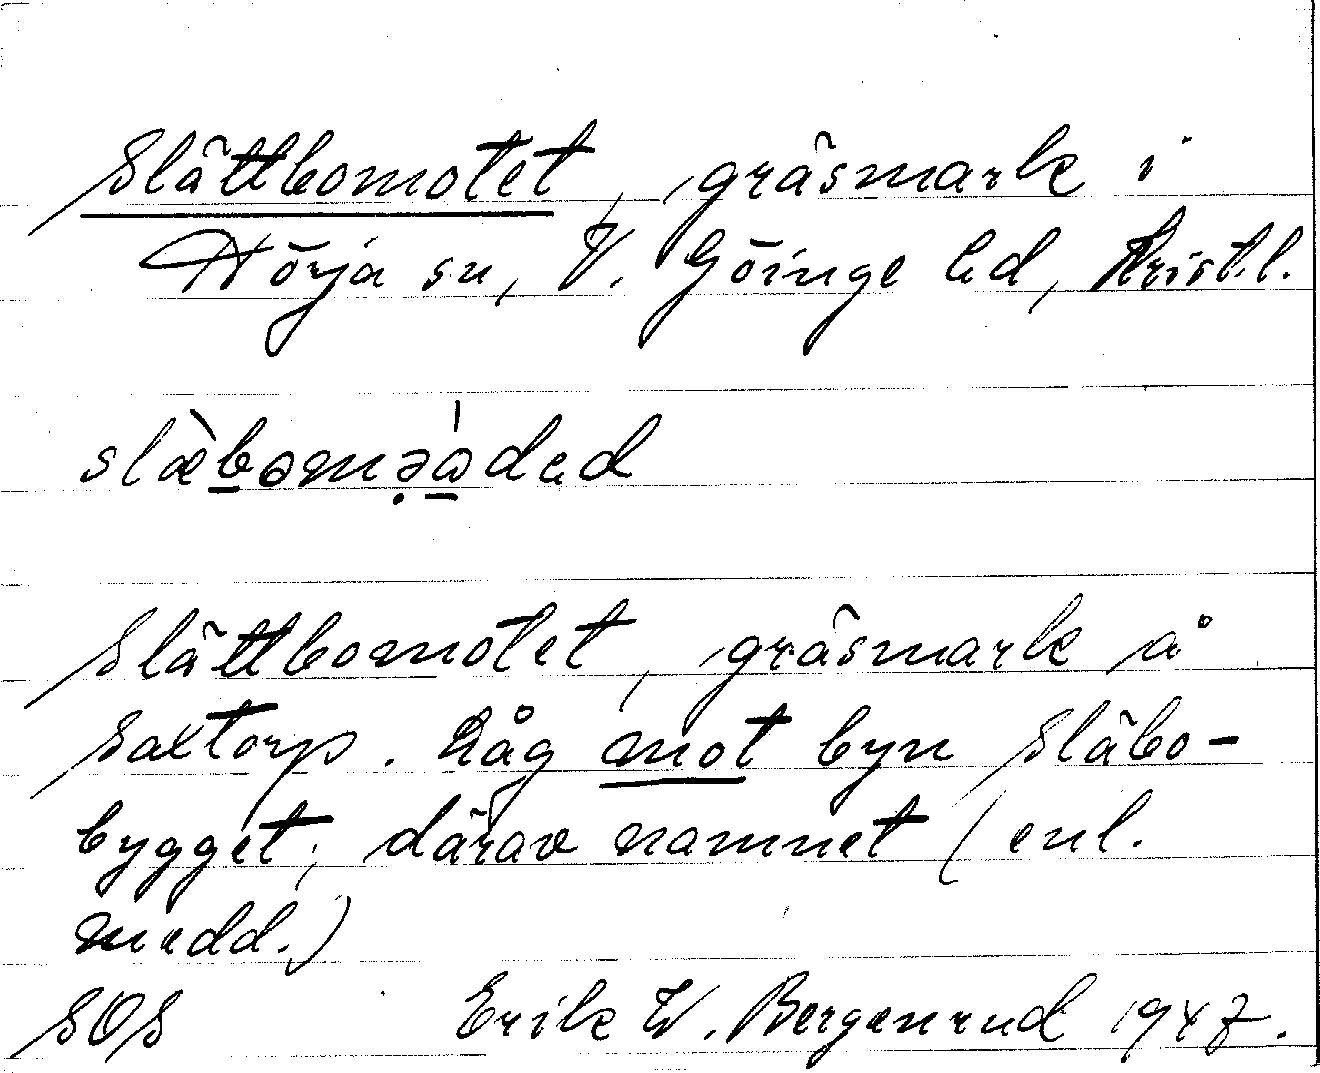 Slättbomotet, gräsmark i
Hörja sn, V. Göinge hd, Krist.l.
slæ̀bəməɷ́dəd
Slättbomotet, gräsmark å
Saxtorp. Låg mot byn Släbo-
bygget; därav namnet (enl.
medd.)
SOS Erik W. Bergenrud 1947.